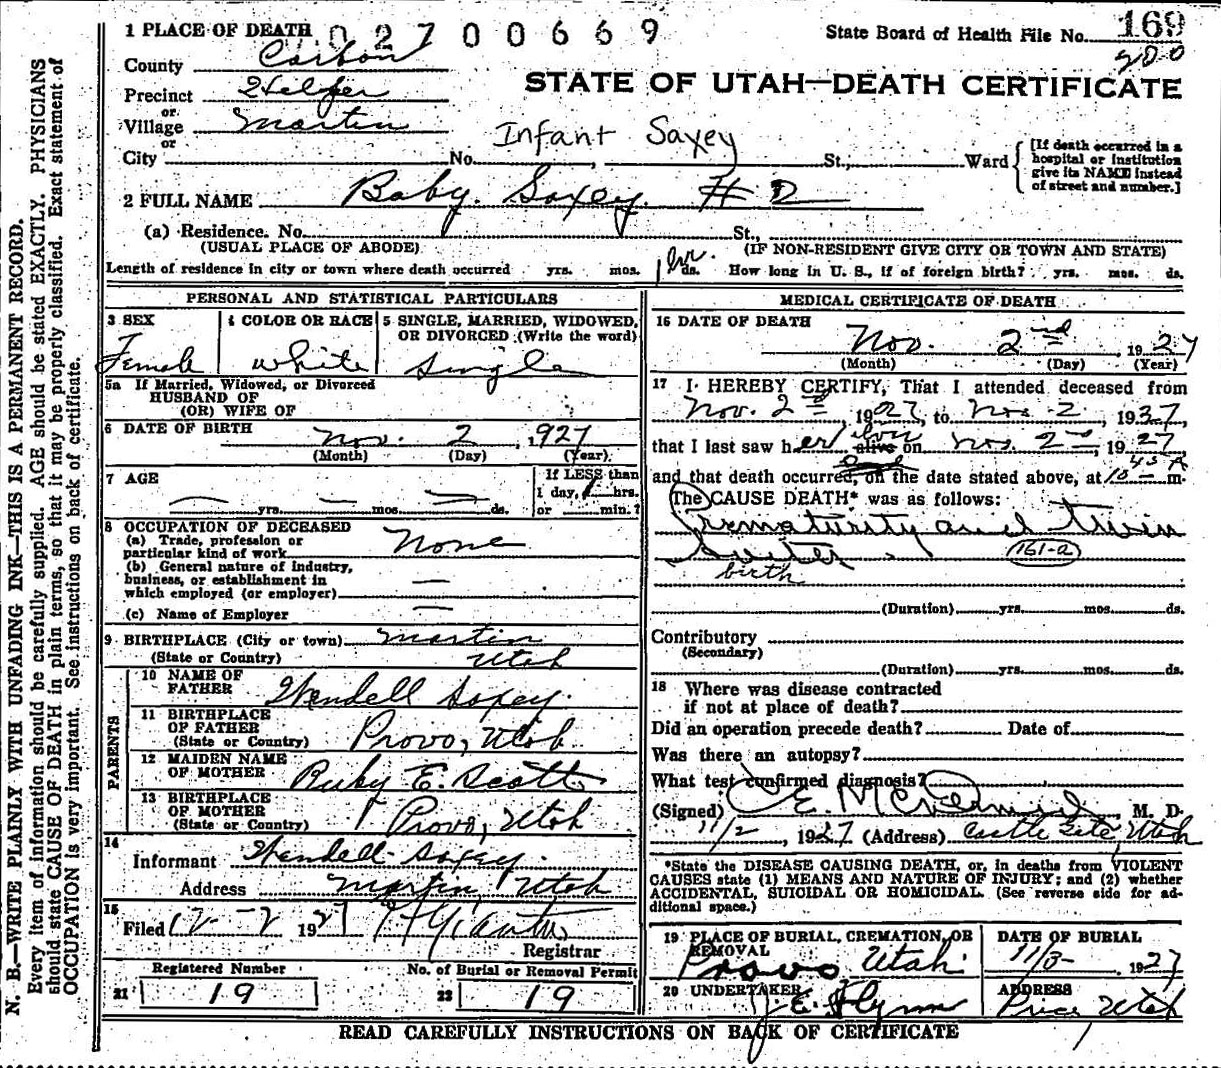 1 PLACE OF DEATH 02700669
State Board of Health File No. 169
200
County Carbon
STATE OF UTAH—DEATH CERTIFICATE
Precinct Helper
or
Village Martin
or
Infant Saxey
City No. , St., Ward
[If death occurred in a hospital or institution give its NAME instead of street and number.]
2 FULL NAME Baby. Saxey. # 2
(a) Residence. No. St.,
(USUAL PLACE OF ABODE) (IF NON-RESIDENT GIVE CITY OR TOWN AND STATE)
Length of residence in city or town where death occurred yrs. mos. 1 hr. ds. How long in U. S., if of foreign birth? yrs. mos. ds.
PERSONAL AND STATISTICAL PARTICULARS
3 SEX
Female
4 COLOR OR RACE
white
5 SINGLE, MARRIED, WIDOWED,
OR DIVORCED (Write the word)
Single
5a If Married, Widowed, or Divorced
HUSBAND OF
(OR) WIFE OF
6 DATE OF BIRTH Nov. 2, 1927
(Month) (Day) (Year)
7 AGE
— yrs. — mos. — ds.
If LESS than
1 day, 1 hrs.
or min.?
8 OCCUPATION OF DECEASED
(a) Trade, profession or
particular kind of work None
(b) General nature of industry,
business, or establishment in
which employed (or employer) —
(c) Name of Employer —
9 BIRTHPLACE (City or town) Martin
(State or Country) Utah
PARENTS
10 NAME OF
FATHER Wendell Saxey.
11 BIRTHPLACE
OF FATHER
(State or Country) Provo, Utah
12 MAIDEN NAME
OF MOTHER Ruby E. Scott
13 BIRTHPLACE
OF MOTHER
(State or Country) Provo, Utah
14
Informant Wendell Saxey.
Address Martin, Utah
15
Filed 12-2 1927
Registrar
Registered Number
21 19
No. of Burial or Removal Permit
22 19
MEDICAL CERTIFICATE OF DEATH
16 DATE OF DEATH
Nov. 2nd 1927
(Month) (Day) (Year)
17 I HEREBY CERTIFY, That I attended deceased from
Nov. 2nd, 1927, to Nov. 2, 1927,
that I last saw her alive on Nov. 2nd, 1927
and that death occurred, on the date stated above, at 10-45 A m.
The CAUSE DEATH* was as follows:
Prematurity and twin
161-a
birth
(Duration) yrs. mos. ds.
Contributory
(Secondary)
(Duration) yrs. mos. ds.
18 Where was disease contracted
if not at place of death?
Did an operation precede death? Date of
Was there an autopsy?
What test confirmed diagnosis?
(Signed) C. E. McDermid, M. D.
11/2, 1927 (Address) Castle Gate, Utah
*State the DISEASE CAUSING DEATH, or, in deaths from VIOLENT
CAUSES state (1) MEANS AND NATURE OF INJURY; and (2) whether
ACCIDENTAL, SUICIDAL OR HOMICIDAL. (See reverse side for ad-
ditional space.)
19 PLACE OF BURIAL, CREMATION, OR
REMOVAL
Provo Utah
DATE OF BURIAL
11/3-, 1927
20 UNDERTAKER
J. E. Flynn
ADDRESS
Price, Utah
READ CAREFULLY INSTRUCTIONS ON BACK OF CERTIFICATE
N. B.—WRITE PLAINLY WITH UNFADING INK—THIS IS A PERMANENT RECORD.
Every item of information should be carefully supplied. AGE should be stated EXACTLY. PHYSICIANS
should state CAUSE OF DEATH in plain terms, so that it may be properly classified. Exact statement of
OCCUPATION is very important. See instructions on back of certificate.